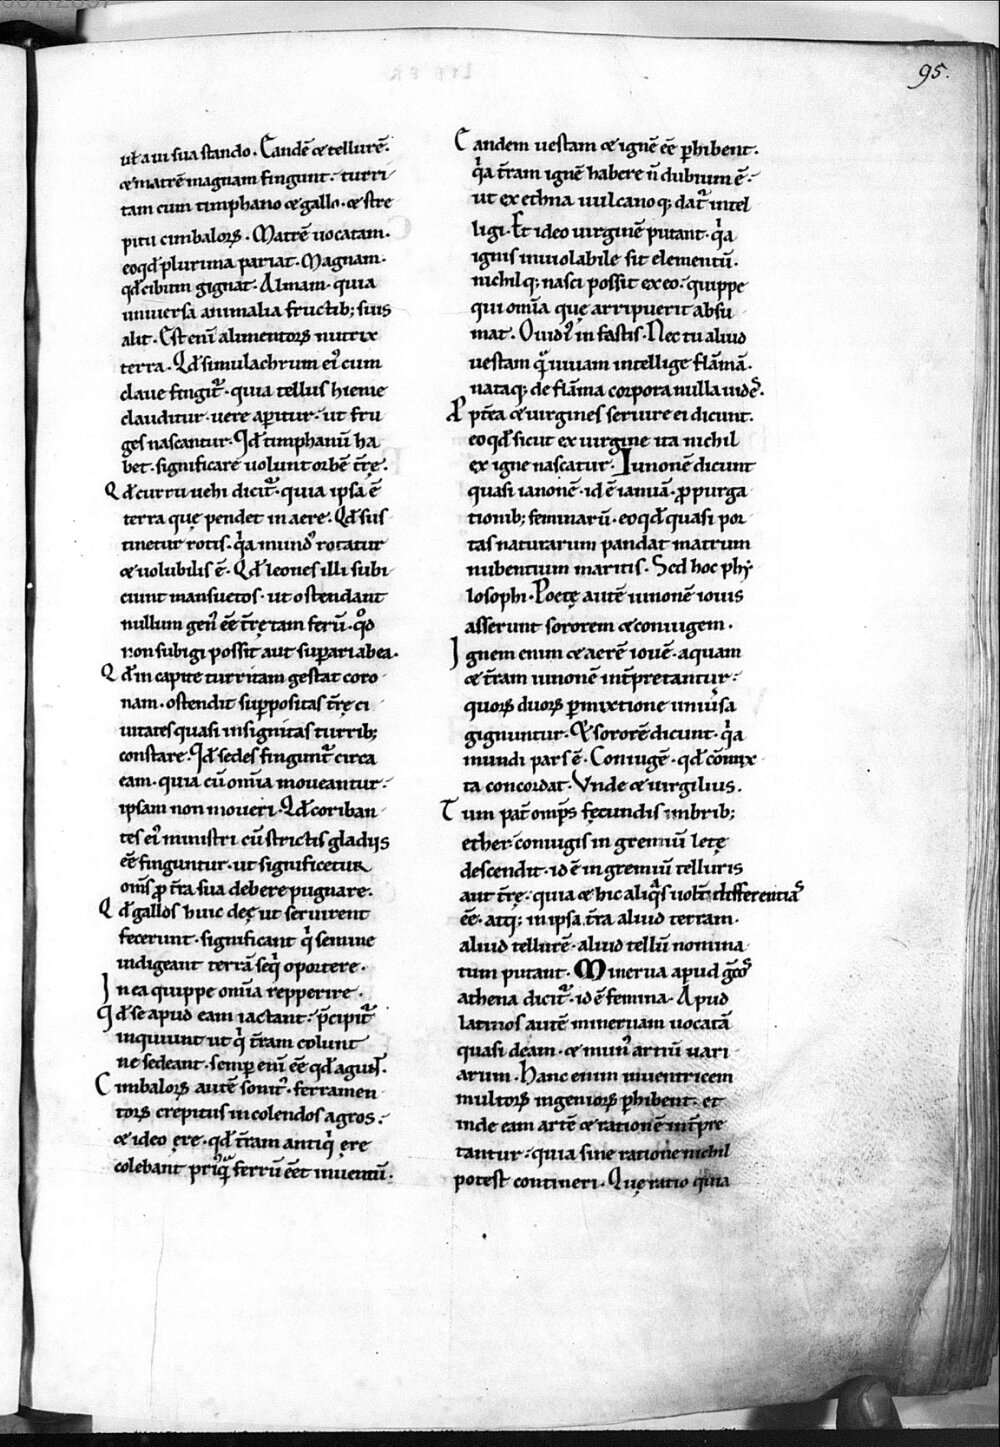 95.
ut̄ a ui sua stando. Candē & tellurē.
& matrē magnam fingunt. turri
tam cum timphano & gallo. & stre
pitu cimbaloꝝ. Matrē uocatam.
eoqđ plurima pariat. Magnam.
qđ cibum gignat. Almam. quia
uniuersa animalia fructib; suis
alit. Est eni alimentoꝝ nutrix
terra. Qđ simulachrum ei᾽ cum
claue fingit᷑. quia tellus hieme
clauditur. uere aperitur. ut fru
ges nascantur. Qđ timphanū ha
bet. significare uolunt orbē tr̄ę.
Qđ curru uehi dicit᷑. quia ipsa ē
terra quę pendet in aere. Qđ sus
tinetur rotis. qa mund᾽ rotatur
& uolubilis ē. Qđ leones illi subi
ciunt mansuetos. ut ostendant
nullum gen᾽ eē tr̄ę tam ferū. qđ
non subigi possit aut suꝑari ab ea.
Qđ in capite turritam gestat coro
nam. ostendit supꝑositas tr̄ę ci
uitates quasi insignitas turrib;
constare. Qđ sedes fingunt᷑ circa
eam. quia cū om̄ia moueantur.
ipsam non moueri. Qđ coriban
tes ei᾽ ministri cū strictis gladiis
eē finguntur. ut significetur
om̄s ꝓ tr̄a sua debere pugnare.
Qđ gallos huic deę ut seruirent
fecerunt. significant qi semine
indigeant terrā seqi oportere.
In ea quippe om̄ia repperire.
Qđ se apud eam iactant. p̄cipit᷑
inquiunt ut qi tr̄am colunt
ne sedeant. semꝑ eni eē qđ agunt.
Cimbaloꝝ autē sonit᾽. ferramen
toꝝ crepitus in colendos agros.
& ideo ęre. qđ tr̄am antiqi ęre
colebant pri᾽qa ferrū eēt inuentū.
Candem uestam & ignē eē ꝑhibent.
qa tr̄am ignē habere n̄ dubium ē.
ut ex ethna uulcanoq; dat᷑ intel
ligi. Et ideo uirginē putant. qa
ignis inuiolabile sit elementū.
nichilq; nasci possit ex eo. quippe
qui om̄ia quę arripuerit absu
mat. Ouidi᾽ in fastis. Nec tu aliud
uestam qa uiuam intellige flāmā.
nataq; de flāma corpora nulla uides.
Ꝓpt̄ea & uirgines seruire ei dicunt.
eo qđ sicut ex uirgine ita nichil
ex igne nascatur. Iunonē dicunt
quasi ianonē. id ē ianuā. ꝓ purga
tionib; feminarū. eo qđ quasi por
tas naturarum pandat matrum
nubentium maritis. Sed hoc phy
losophi. Poetę autē iunonē iouis
asserunt sororem & coniugem.
Ignem enim & aerē iouē. aquam
& tr̄am iunonē int̄pretantur.
quoꝝ duoꝝ ꝑmixtione uniu᾽sa
gignuntur. Et sororē dicunt. qa
mundi pars ē. Coniugē. qđ cōmix
ta concordat. Vnde & uirgilius.
Tum pat̄ omp̄s fęcundis imbrib;
ether coniugis in gremiū letę
descendit. id ē in gremiū telluris
aut tr̄ę. quia & hic aliqi uolt̄ differentias
eē. atq; in ipsa tr̄a aliud terram.
aliud tellurē. aliud tellū nomina
tum putant. Minerua apud gc̄os
athena dicit᷑. id ē femina. Apud
latinos autē mineruam uocatā
quasi deam. & mun᾽ artiū uari
arum. Hanc enim inuentricem
multoꝝ ingenioꝝ ꝑhibent. et
inde eam artē & rationē int̄pre
tantur. quia sine ratione nichil
potest contineri. Quę ratio quia